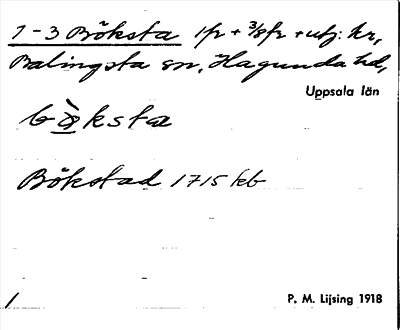 1-3 Böksta 1 fr + 3/8 fr + utj. kr,
Balingsta sn, Hagunda hd,
Uppsala län
Bökstad 1715 kb
P. M. Lijsing 1918
1